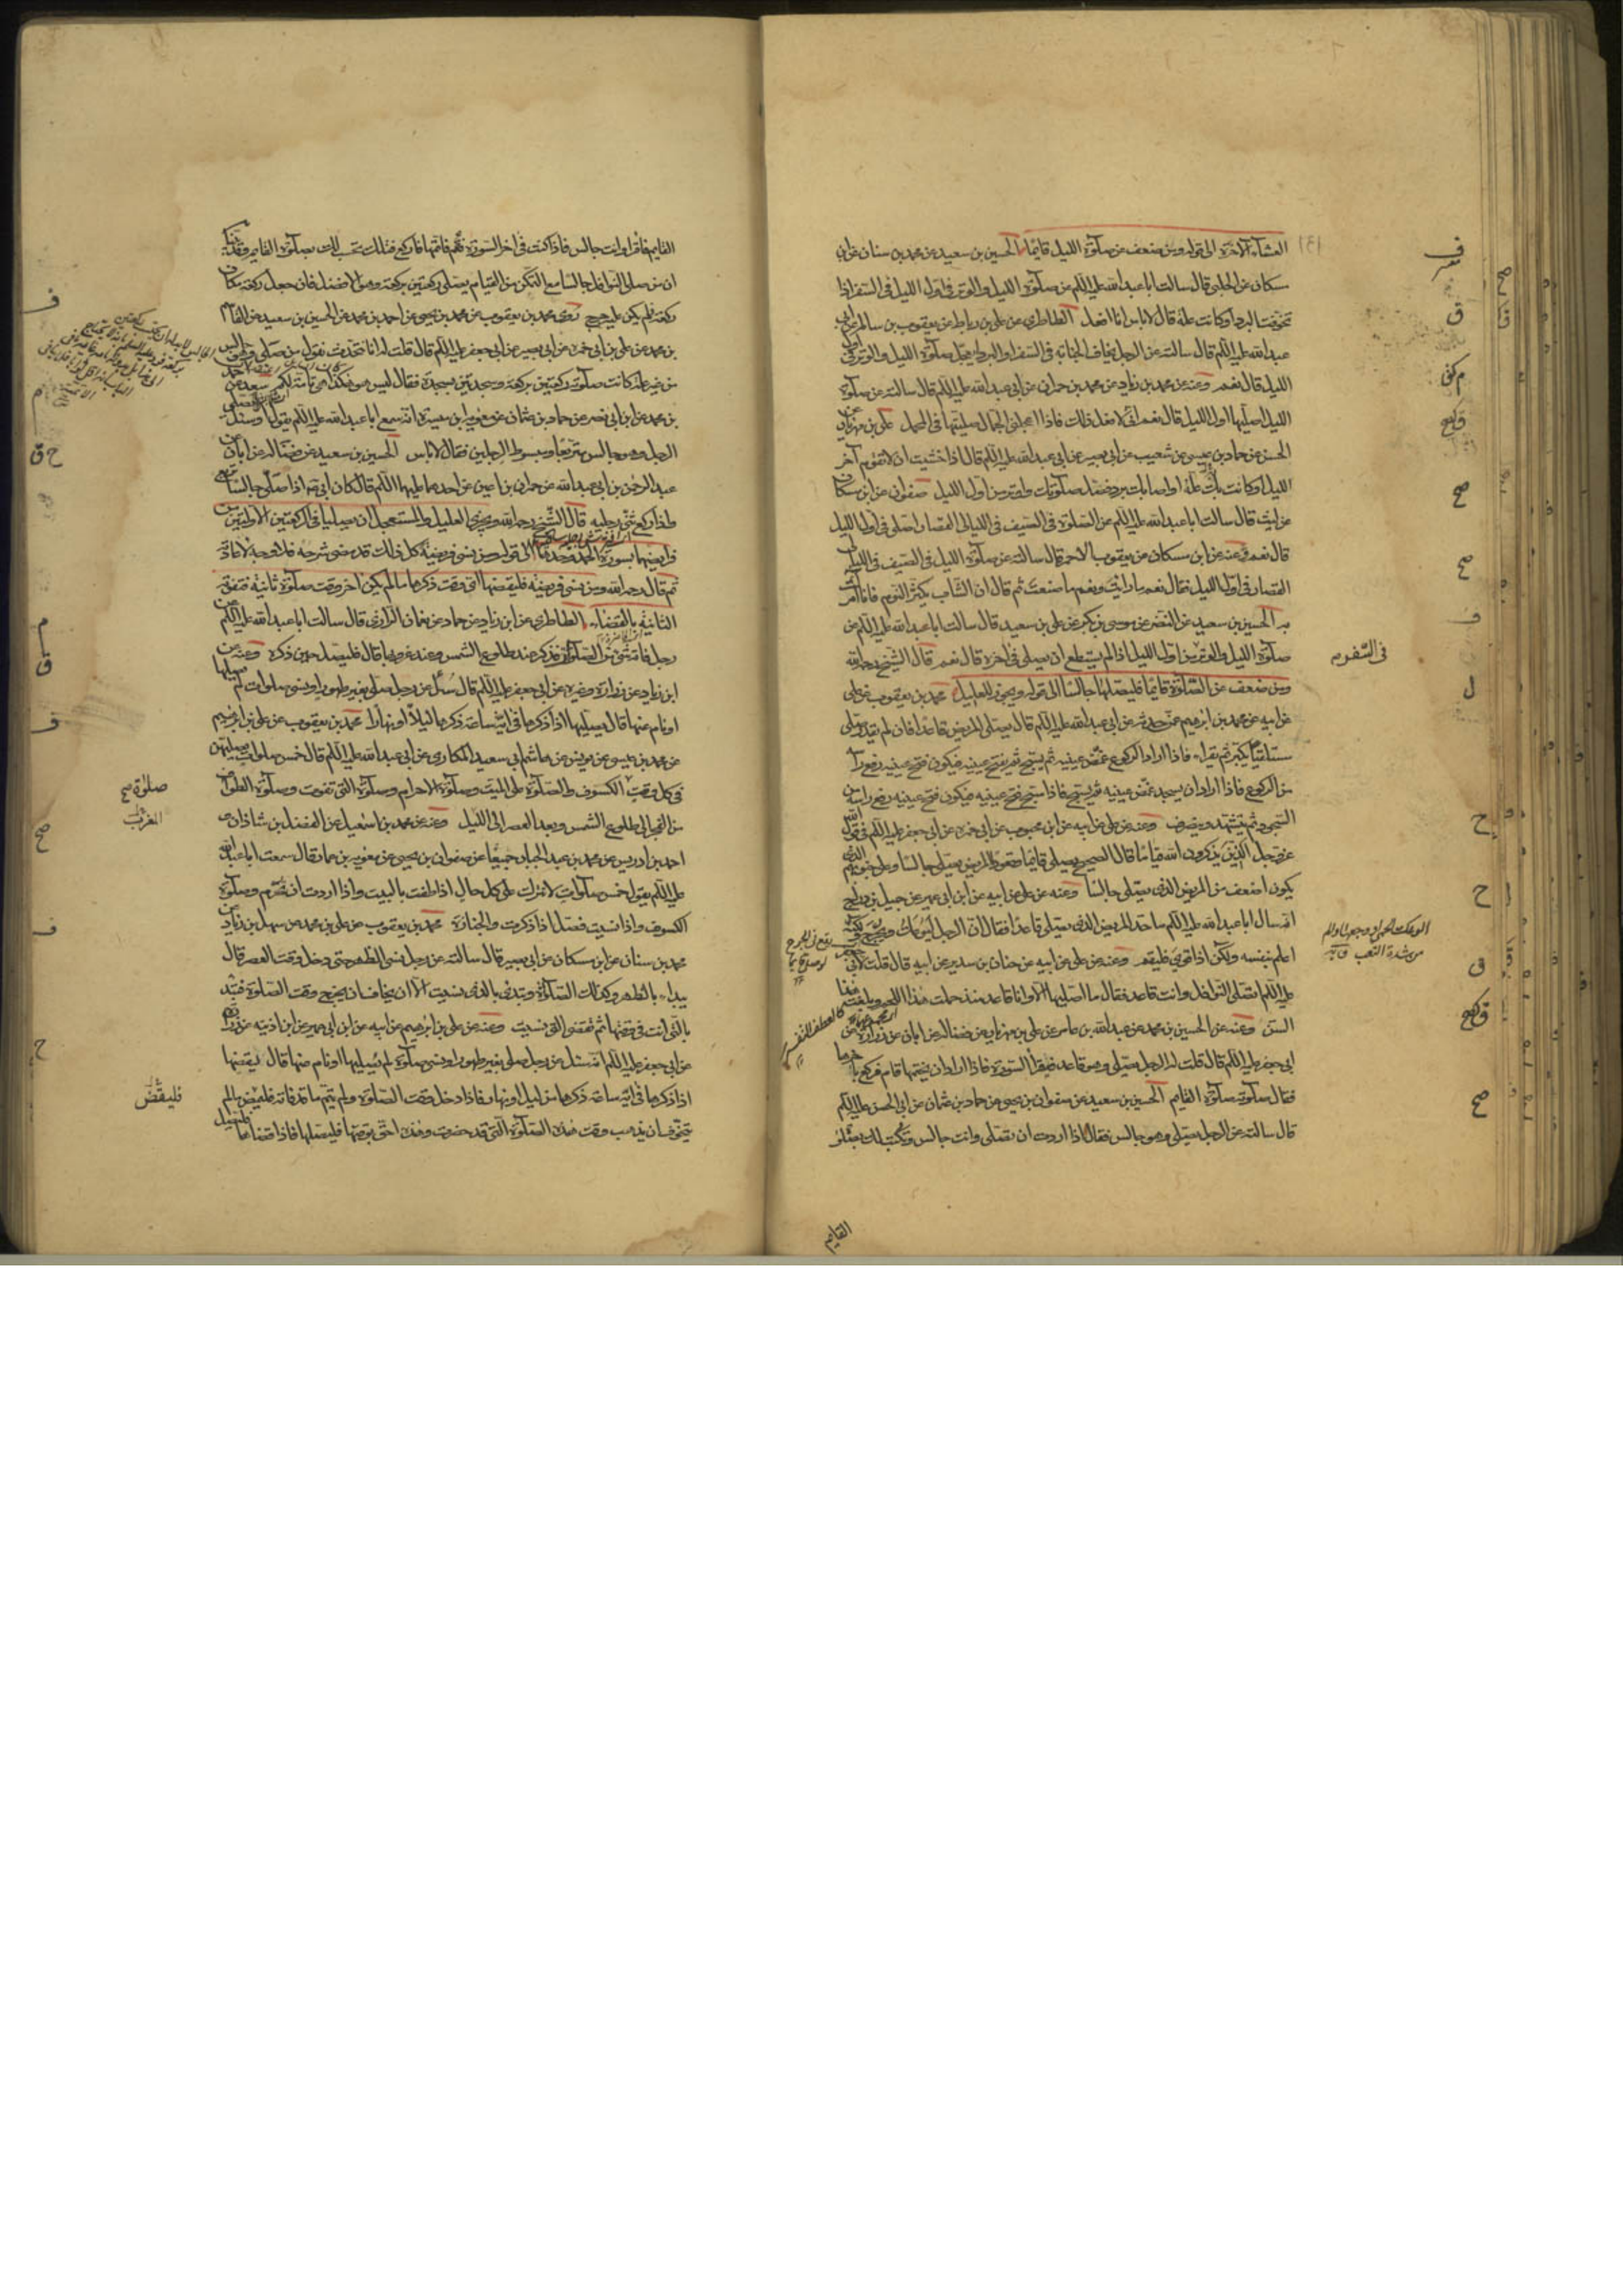 العشاء الآخرة الى قوله ومن ضعف عن صلوة الليل قائما الحسين بن سعيد عن محمد بن سنان عن ابن
مسكان عن الحلبي قال سالت ابا عبد الله عليه السلم عن صلوة الليل والوتر في اول الليل في السفر اذا
تخوفت البرد او كانت علة قال لا باس انا افعل الطاطري عن علي بن رباط عن يعقوب بن سالم عن ابي
عبد الله عليه السلم قال سالته عن الرجل يخاف الجنابة في السفر او البرد ايعجل صلوة الليل والوتر في اول
الليل قال نعم وعنه عن محمد بن زياد عن محمد بن حمران عن ابي عبد الله عليه السلم قال سالته عن صلوة
الليل اصليها اول الليل قال نعم اني لافعل ذلك فاذا اعجلني الجمال صليتها في المحمل علي بن مهزيار عن
الحسن عن حماد بن عيسى عن شعيب عن ابي بصير عن ابي عبد الله عليه السلم قال اذا خشيت ان لا تقوم آخر
الليل او كانت بك علة او اصابك برد فصل صلوتك واوتر من اول الليل صفوان عن ابن مسكان
عن ليث قال سالت ابا عبد الله عليه السلم عن الصلوة في الصيف في الليالي القصار اصلي في اول الليل
قال نعم وعنه عن ابن مسكان عن يعقوب الاحمر قال سالته عن صلوة الليل في الصيف في الليالي
القصار في اول الليل فقال نعم ما رايت ونعم ما صنعت ثم قال ان الشاب يكثر النوم فانا آمرك
به الحسين بن سعيد عن النضر عن موسى بن بكر عن علي بن سعيد قال سالت ابا عبد الله عليه السلم عن
صلوة الليل والوتر من اول الليل اذا لم يستطع ان يصلي في اخره قال نعم قال الشيخ رحمه الله
ومن ضعف عن الصلوة قائما فليصلها جالسا الى قوله ويجوز للعليل محمد بن يعقوب عن علي
عن ابيه عن محمد بن ابرهيم عمن حدثه عن ابي عبد الله عليه السلم قال يصلي المريض قاعدا فان لم يقدر صلى
مستلقيا يكبر ثم يقراء فاذا اراد الركوع غمض عينيه ثم يسبح ثم يفتح عينيه فيكون فتح عينيه رفع راسه
من الركوع فاذا اراد ان يسجد غمض عينيه ثم يسبح فاذا سبح فتح عينيه فيكون فتح عينيه رفع راسه من
السجود ثم يتشهد وينصرف وعنه عن علي عن ابيه عن ابن محبوب عن ابي حمزه عن ابي جعفر عليه السلم في قول الله
عز وجل الذين يذكرون الله قياما قال الصحيح يصلي قائما وقعودا المريض يصلي جالسا وعلى جنوبهم الذي
يكون اضعف من المريض الذي يصلي جالسا وعنه عن علي عن ابيه عن ابن ابي عمير عن جميل بن دراج
انه سال ابا عبد الله عليه السلم ما حد المريض الذي يصلي قاعدا فقال ان الرجل ليوعك ويحرج ولكنه
اعلم بنفسه ولكن اذا قوي فليقم وعنه عن علي عن ابيه عن حنان بن سدير عن ابيه قال قلت لابي جعفر
عليه السلم اتصلي النوافل وانت قاعد فقال ما اصليها الا وانا قاعد منذ حملت هذا اللحم وبلغت هذا
السن وعنه عن الحسين بن محمد عن عبد الله بن عامر عن علي بن مهزيار عن فضالة عن ابان عن زرارة عن
ابي جعفر عليه السلم قال قلت له الرجل يصلي وهو قاعد فيقرأ السورة فاذا اراد ان يختمها قام فركع باخرها
فقال صلوته صلوة القايم الحسين بن سعيد عن صفوان بن يحيى عن حماد بن عثمان عن ابي الحسن عليه السلم
قال سالته عن الرجل يصلي وهو جالس فقال اذا اردت ان تصلي وانت جالس وتكتب لك بصلوة
القايم
في السفر م
صح
ق
ل
ح
القايم فاقرا وانت جالس فاذا كنت في اخر السورة فقم فاتمها فاركع فتلك تحسب لك بصلوة القايم وقد بينا
ان من صلى النوافل جالسا مع التمكن من القيام يصلي ركعتين بركعة وهو الافضل فان جعل ركعة مكان
ركعة لم يكن عليه حرج روى محمد بن يعقوب عن محمد بن يحيى عن احمد بن محمد عن الحسين بن سعيد عن القاسم
بن محمد عن علي بن ابي حمزه عن ابي بصير عن ابي جعفر عليه السلم قال قلت له انا نتحدث نقول من صلى وهو جالس
من غير علة كانت صلوته ركعتين بركعة وسجدتين بسجدة فقال ليس هو هكذا هي تامة لكم سعد عن احمد
بن محمد عن ابن ابي نصر عن حماد بن عثمان عن معوية بن ميسرة انه سمع ابا عبد الله عليه السلم يقول او سئل ايصلي
الرجل وهو جالس متربعا ومبسوط الرجلين فقال لا باس الحسين بن سعيد عن فضالة عن ابان عن
عبد الرحمن بن ابي عبد الله عن حمران بن اعين عن احدهما عليهما السلم قال كان ابي ع اذا صلى جالسا تربع
فاذا ركع ثنى رجليه قال الشيخ رحمه الله ويجزي العليل والمستعجل ان يصليا في الركعتين الاولتين من
فرايضهما بسورة الحمد وحدها الى قوله ومن نسي فريضة كل ذلك قد مضى شرحه فلا وجه لاعادته
ثم قال رحمه الله ومن نسي فريضة فليقضها اي وقت ذكرها ما لم يكن اخر وقت صلوة ثانية فتفوته
الثانية بالقضاء الطاطري عن ابن زياد عن حماد عن نعمان الرازي قال سالت ابا عبد الله عليه السلم عن
رجل فاته شيء من الصلوات فذكر عند طلوع الشمس وعند غروبها قال فليصل حين ذكره وعنه عن
ابن زياد عن زرارة وغيره عن ابي جعفر عليه السلم قال سئل عن رجل صلى بغير طهور او نسي صلوات لم يصلها
او نام عنها قال يصليها اذا ذكرها في اية ساعة ذكرها ليلا او نهارا محمد بن يعقوب عن علي بن ابرهيم
عن محمد بن عيسى عن يونس عن هاشم ابي سعيد المكاري عن ابي عبد الله عليه السلم قال خمس صلوات يصليهن
في كل وقت الكسوف والصلوة على الميت وصلوة الاحرام وصلوة التي تفوت وصلوة الطواف
من الفجر الى طلوع الشمس وبعد العصر الى الليل وعنه عن محمد بن اسمعيل عن الفضل بن شاذان و
احمد بن ادريس عن محمد بن عبد الجبار جميعا عن صفوان بن يحيى عن معوية بن عمار قال سمعت ابا عبد الله
عليه السلم يقول خمس صلوات لا تترك على كل حال اذا طفت بالبيت واذا اردت ان تحرم وصلوة
الكسوف واذا نسيت فصل اذا ذكرت والجنازة محمد بن يعقوب عن علي بن محمد عن سهل بن زياد عن
محمد بن سنان عن ابن مسكان عن ابي بصير قال سالته عن رجل نسي الظهر حتى دخل وقت العصر قال
يبداء بالظهر وكذلك الصلوة تبدئ بالذي نسيت الا ان يخاف ان يخرج وقت الصلوة فتبدا
بالتي انت في وقتها ثم تقضي التي نسيت وعنه عن علي بن ابرهيم عن ابيه عن ابن ابي عمير عن ابن اذينه عن زرارة
عن ابي جعفر عليه السلم انه سئل عن رجل صلى بغير طهور او نسي صلوة لم يصليها او نام عنها قال يقضيها
اذا ذكرها في اية ساعة ذكرها من ليل او نهار فاذا دخل وقت الصلوة ولم يتم ما قد فاته فليقض ما لم
يتخوف ان يذهب وقت هذه الصلوة التي قد حضرت وهذه احق بوقتها فليصلها فاذا قضاها فليصل
صلوة صح
فليقض